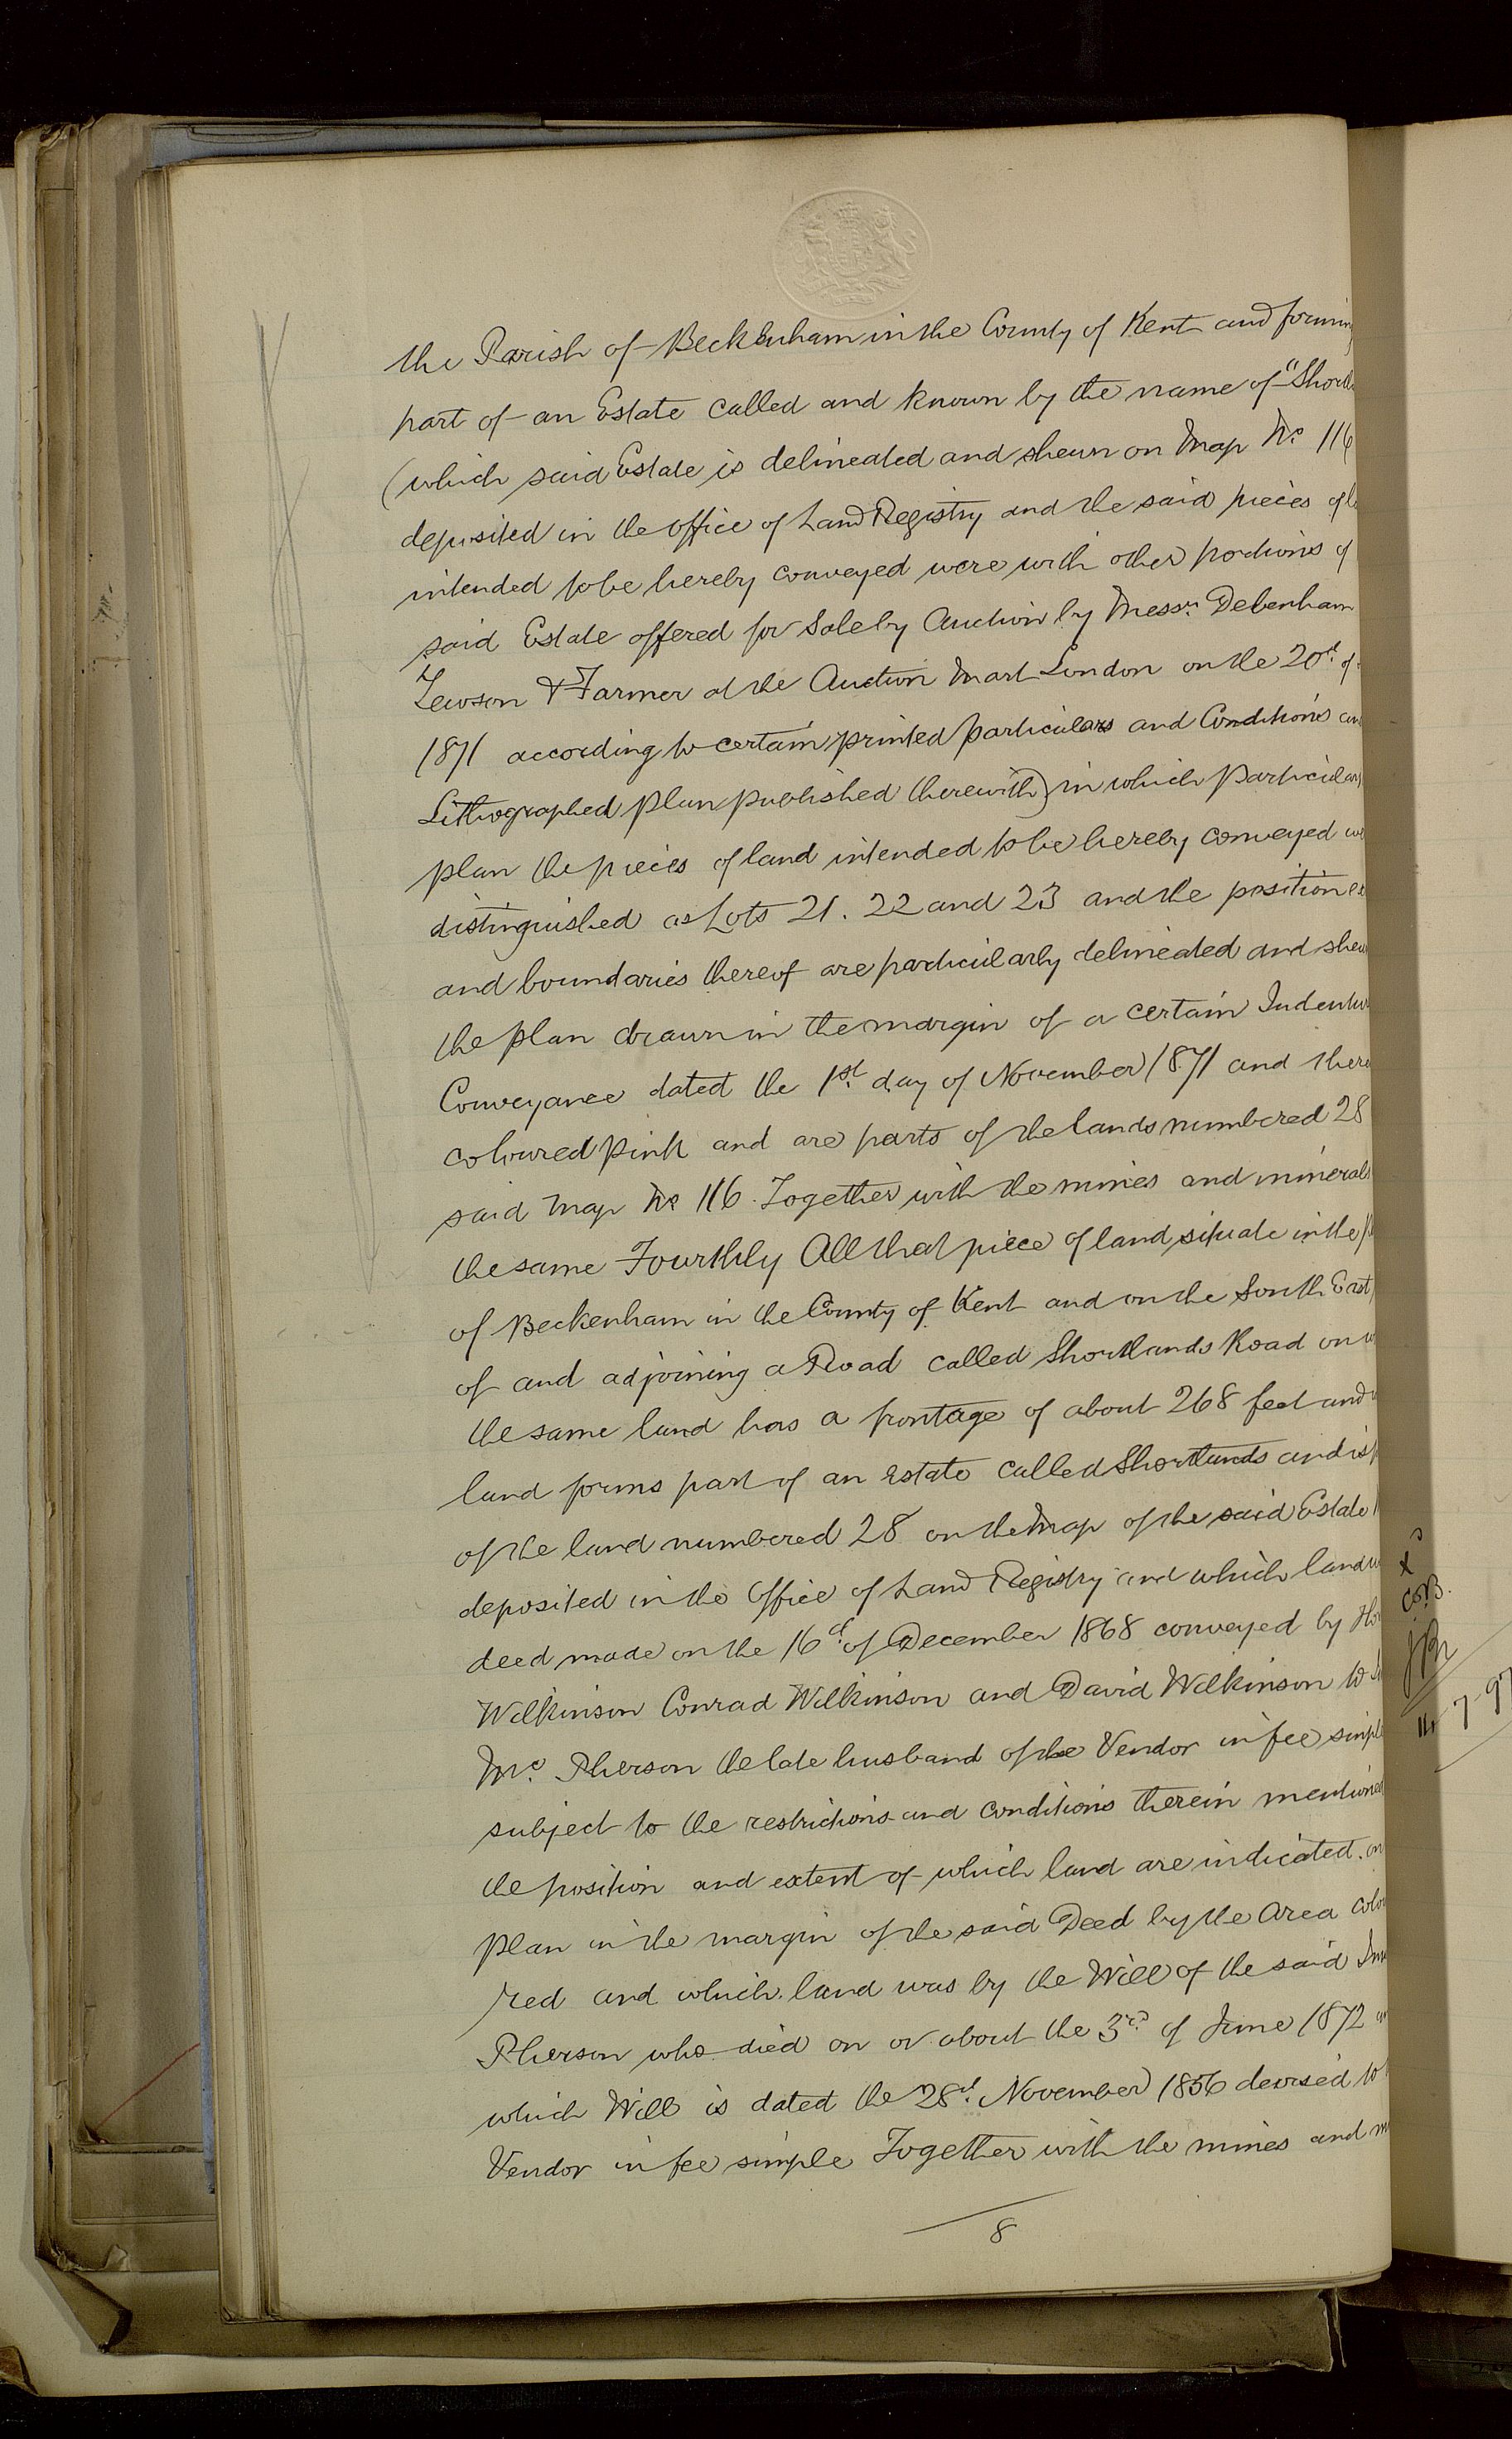 the Parish of Beckenham in the County of Kent and forming
part of an Estate called and known by the name of "Shortl
(which said Estate is delineated and shewn on Map No 116
deposited in the office of Land Registry and the said pieces of l
intended to be hereby conveyed were with other portions of
said Estate offered for Sale by Auction by Messrs. Debenham
Tewson & Farmer at the Auction Mart London on the 20th. of
1871 according to certain printed particulars and Conditions an
Lithographed plan published therewith) in which Particulars
plan the pieces of land intended to be hereby conveyed we
distinguished as Lots 21. 22 and 23 and the position ex
and boundaries thereof are particularly delineated and shew
the plan drawn in the margin of a certain Indentur
Conveyance dated the 1st. day of November 1871 and there
coloured pink and are parts of the lands numbered 28
said Map No 116. Together with the mines and minerals
the same Fourthly All that piece of land situate in the
of Beckenham in the County of Kent and on the South East
of and adjoining a Road called Shortlands Road on w
the same land has a frontage of about 268 feet and
land forms part of an estate called Shortlands and is p
of the land numbered 28 on the Map of the said Estate
deposited in the Office of Land Registry and which land w
deed made on the 16th. of December 1868 conveyed by
Wilkinson Conrad Wilkinson and David Wilkinson to
Mc. Pherson the late husband of the Vendor in fee simple
subject to the restrictions and conditions therein mentioned
the position and extent of which land are indicated. on
plan in the margin of the said Deed by the Area colou
red and which land was by the Will of the said
Pherson who died on or about the 3rd. of June 1872
which Will is dated the 28th. November 1856 devised to
Vendor in fee simple Together with the mines and m
8
7-97